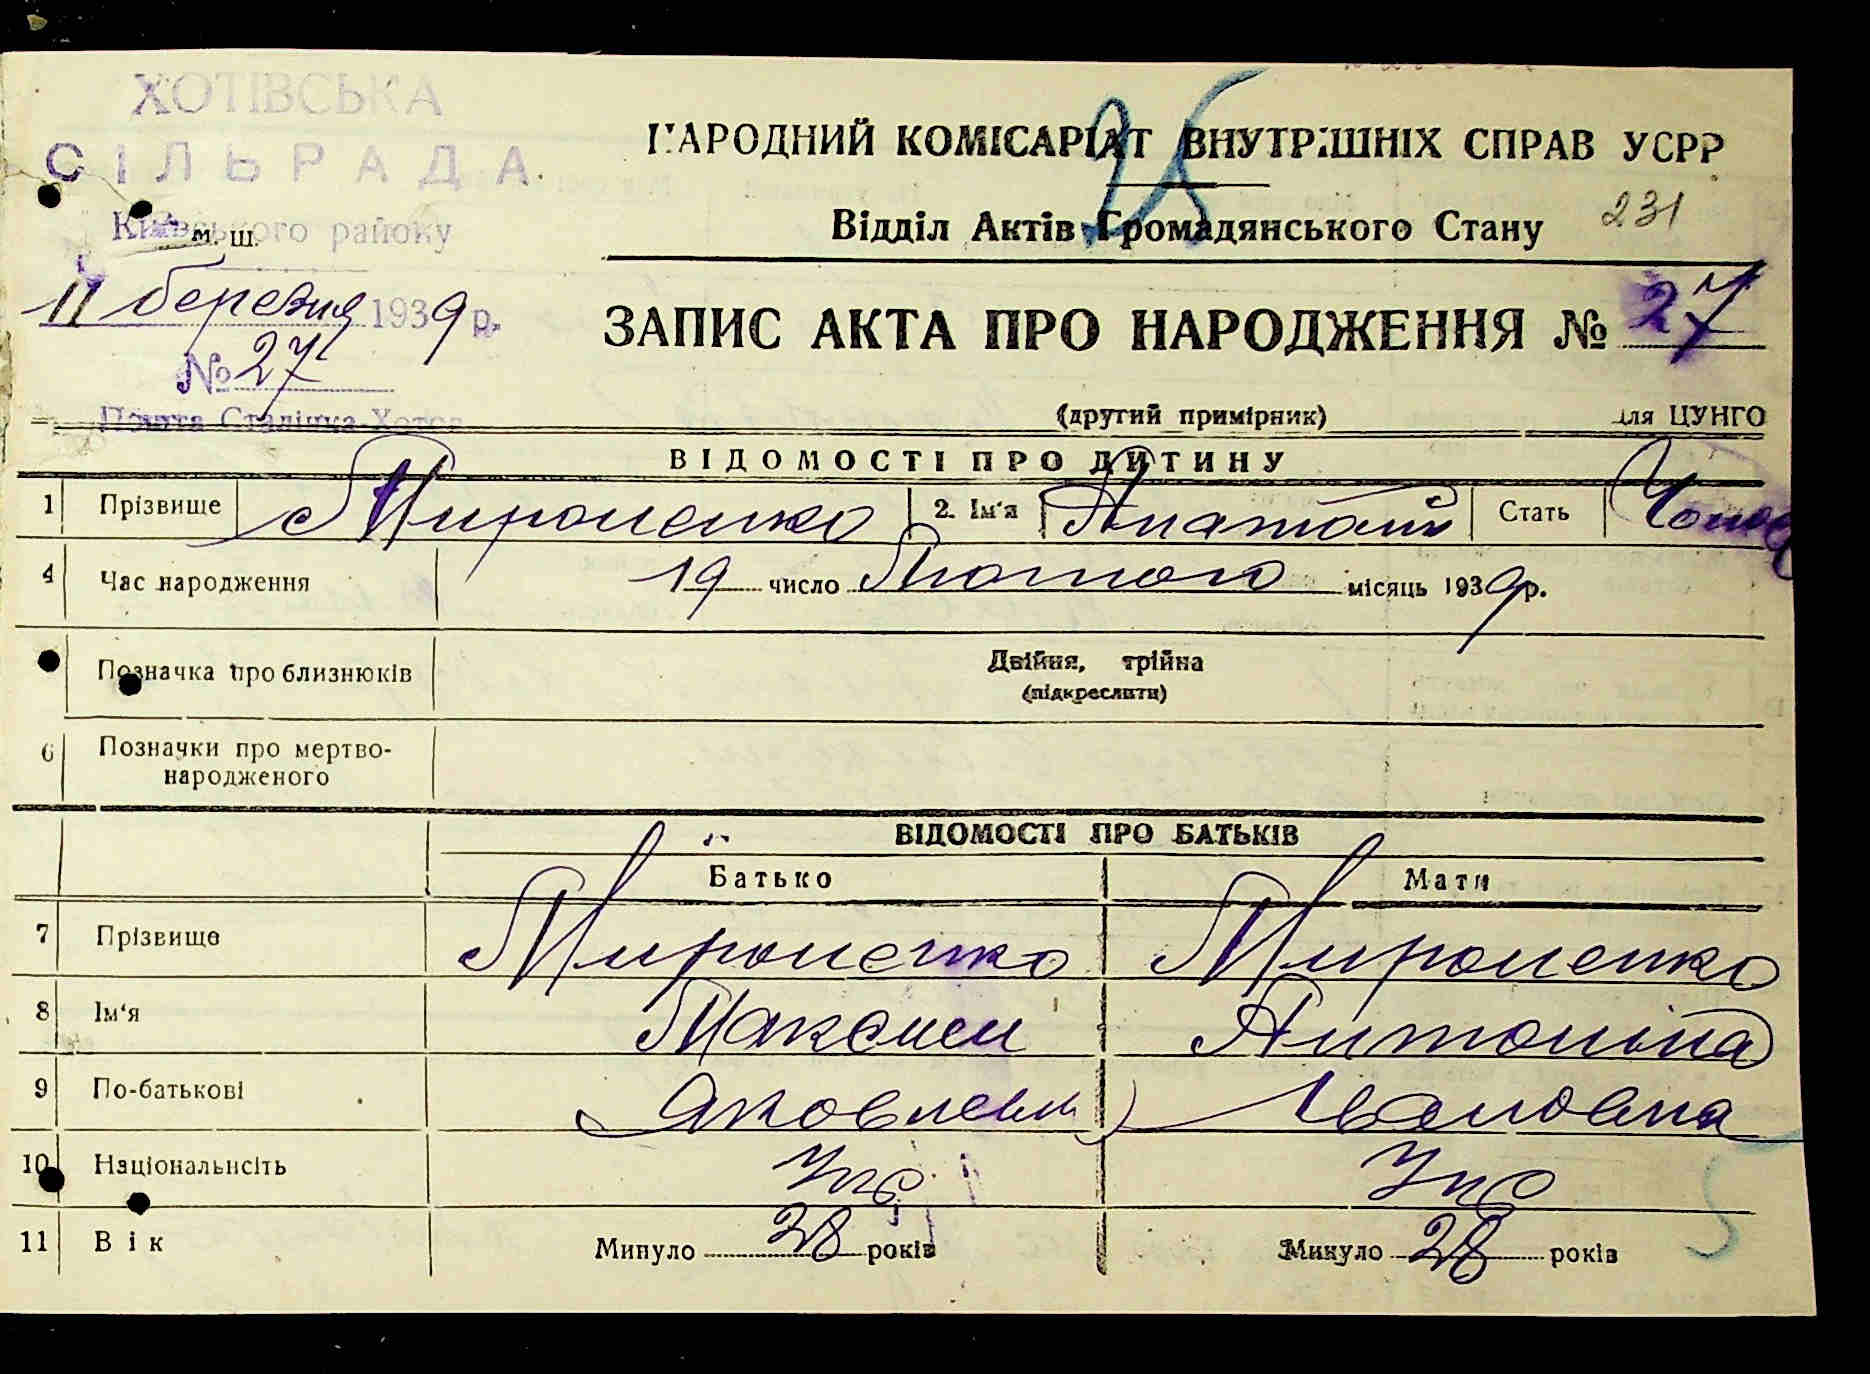 ХОТІВСЬКА
СІЛЬРАДА
Київського району
м. ш.
11 березня 1939 р.
№ 27
Пошта Сталінка-Хотов
25
НАРОДНИЙ КОМІСАРІАТ ВНУТРІШНІХ СПРАВ УСРР
Відділ Актів Громадянського Стану 231
ЗАПИС АКТА ПРО НАРОДЖЕННЯ № 27
(другий примірник) для ЦУНГО
ВІДОМОСТІ ПРО ДИТИНУ
1 Прізвище Мироненко 2. Ім'я Анатолій Стать Чолов
4 Час народження 19 число Лютого місяць 1939 р.
Позначка про близнюків Двійня, трійна
(підкреслити)
6 Позначки про мертво-
народженого
ВІДОМОСТІ ПРО БАТЬКІВ
Батько Мати
7 Прізвище Мироненко Мироненко
8 Ім'я Максим Антоніна
9 По-батькові Яковлевич Ивановна
10 Національність Укр Укр
11 Вік Минуло 28 років Минуло 28 років
5